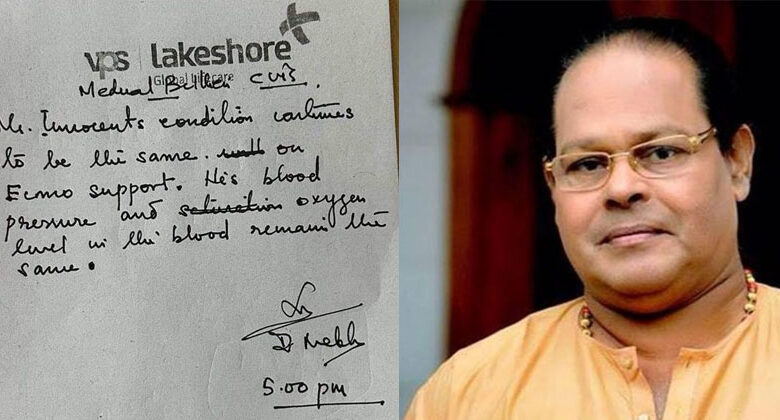 vps | lakeshore
Global Lifecare
Medical
Mr. Innocent's condition continues
to be the same. on
Ecmo support. His blood
pressure and saturation oxygen
level in the blood remain the
same.
Dr
5.00 pm